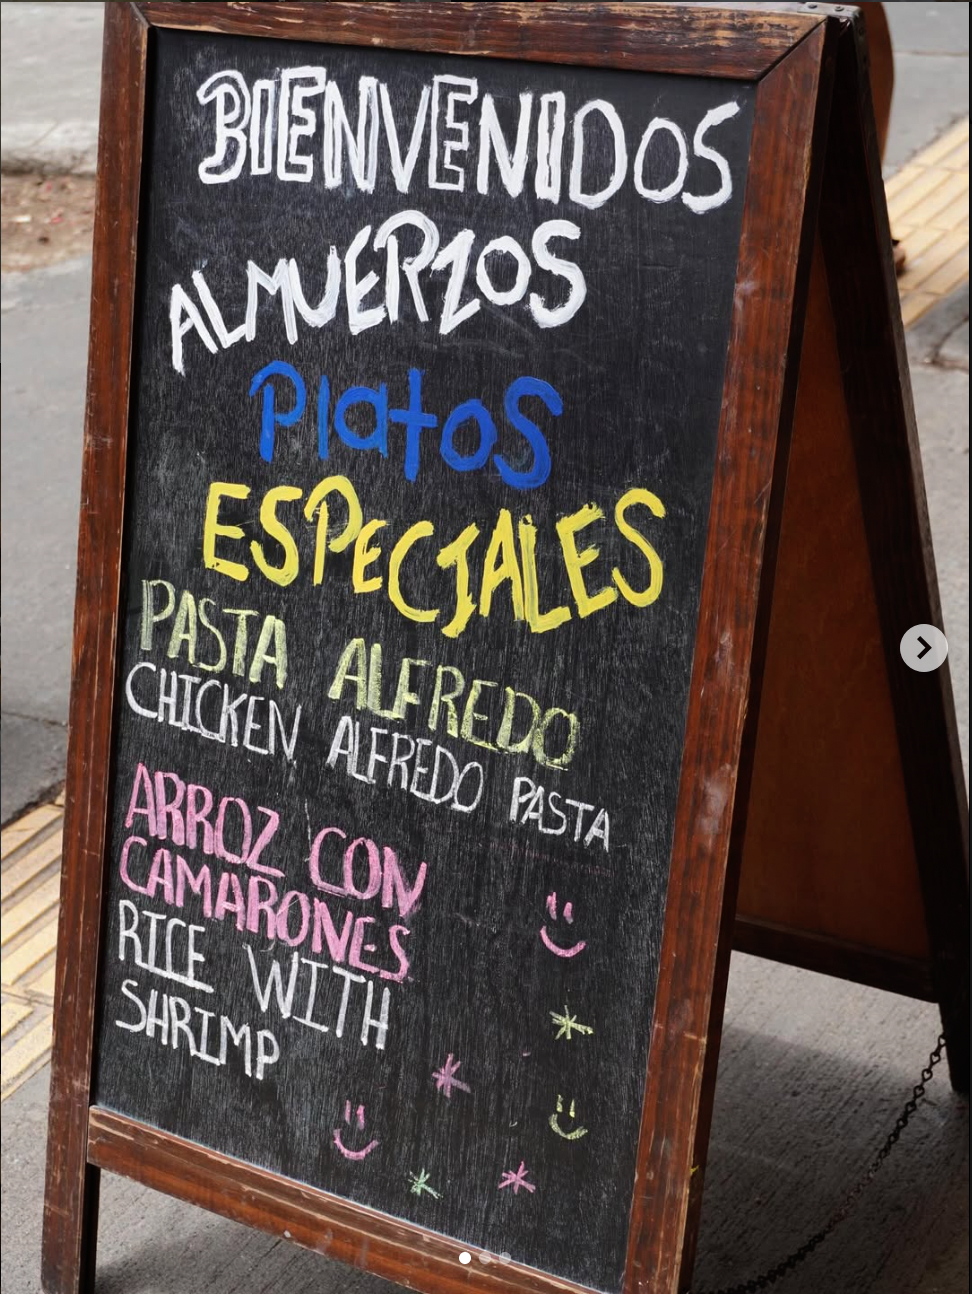 BIENVENIDOS
ALMUERZOS
Platos
ESPECIALES
PASTA ALFREDO
CHICKEN ALFREDO PASTA
ARROZ CON
CAMARONES
RICE WITH
SHRIMP